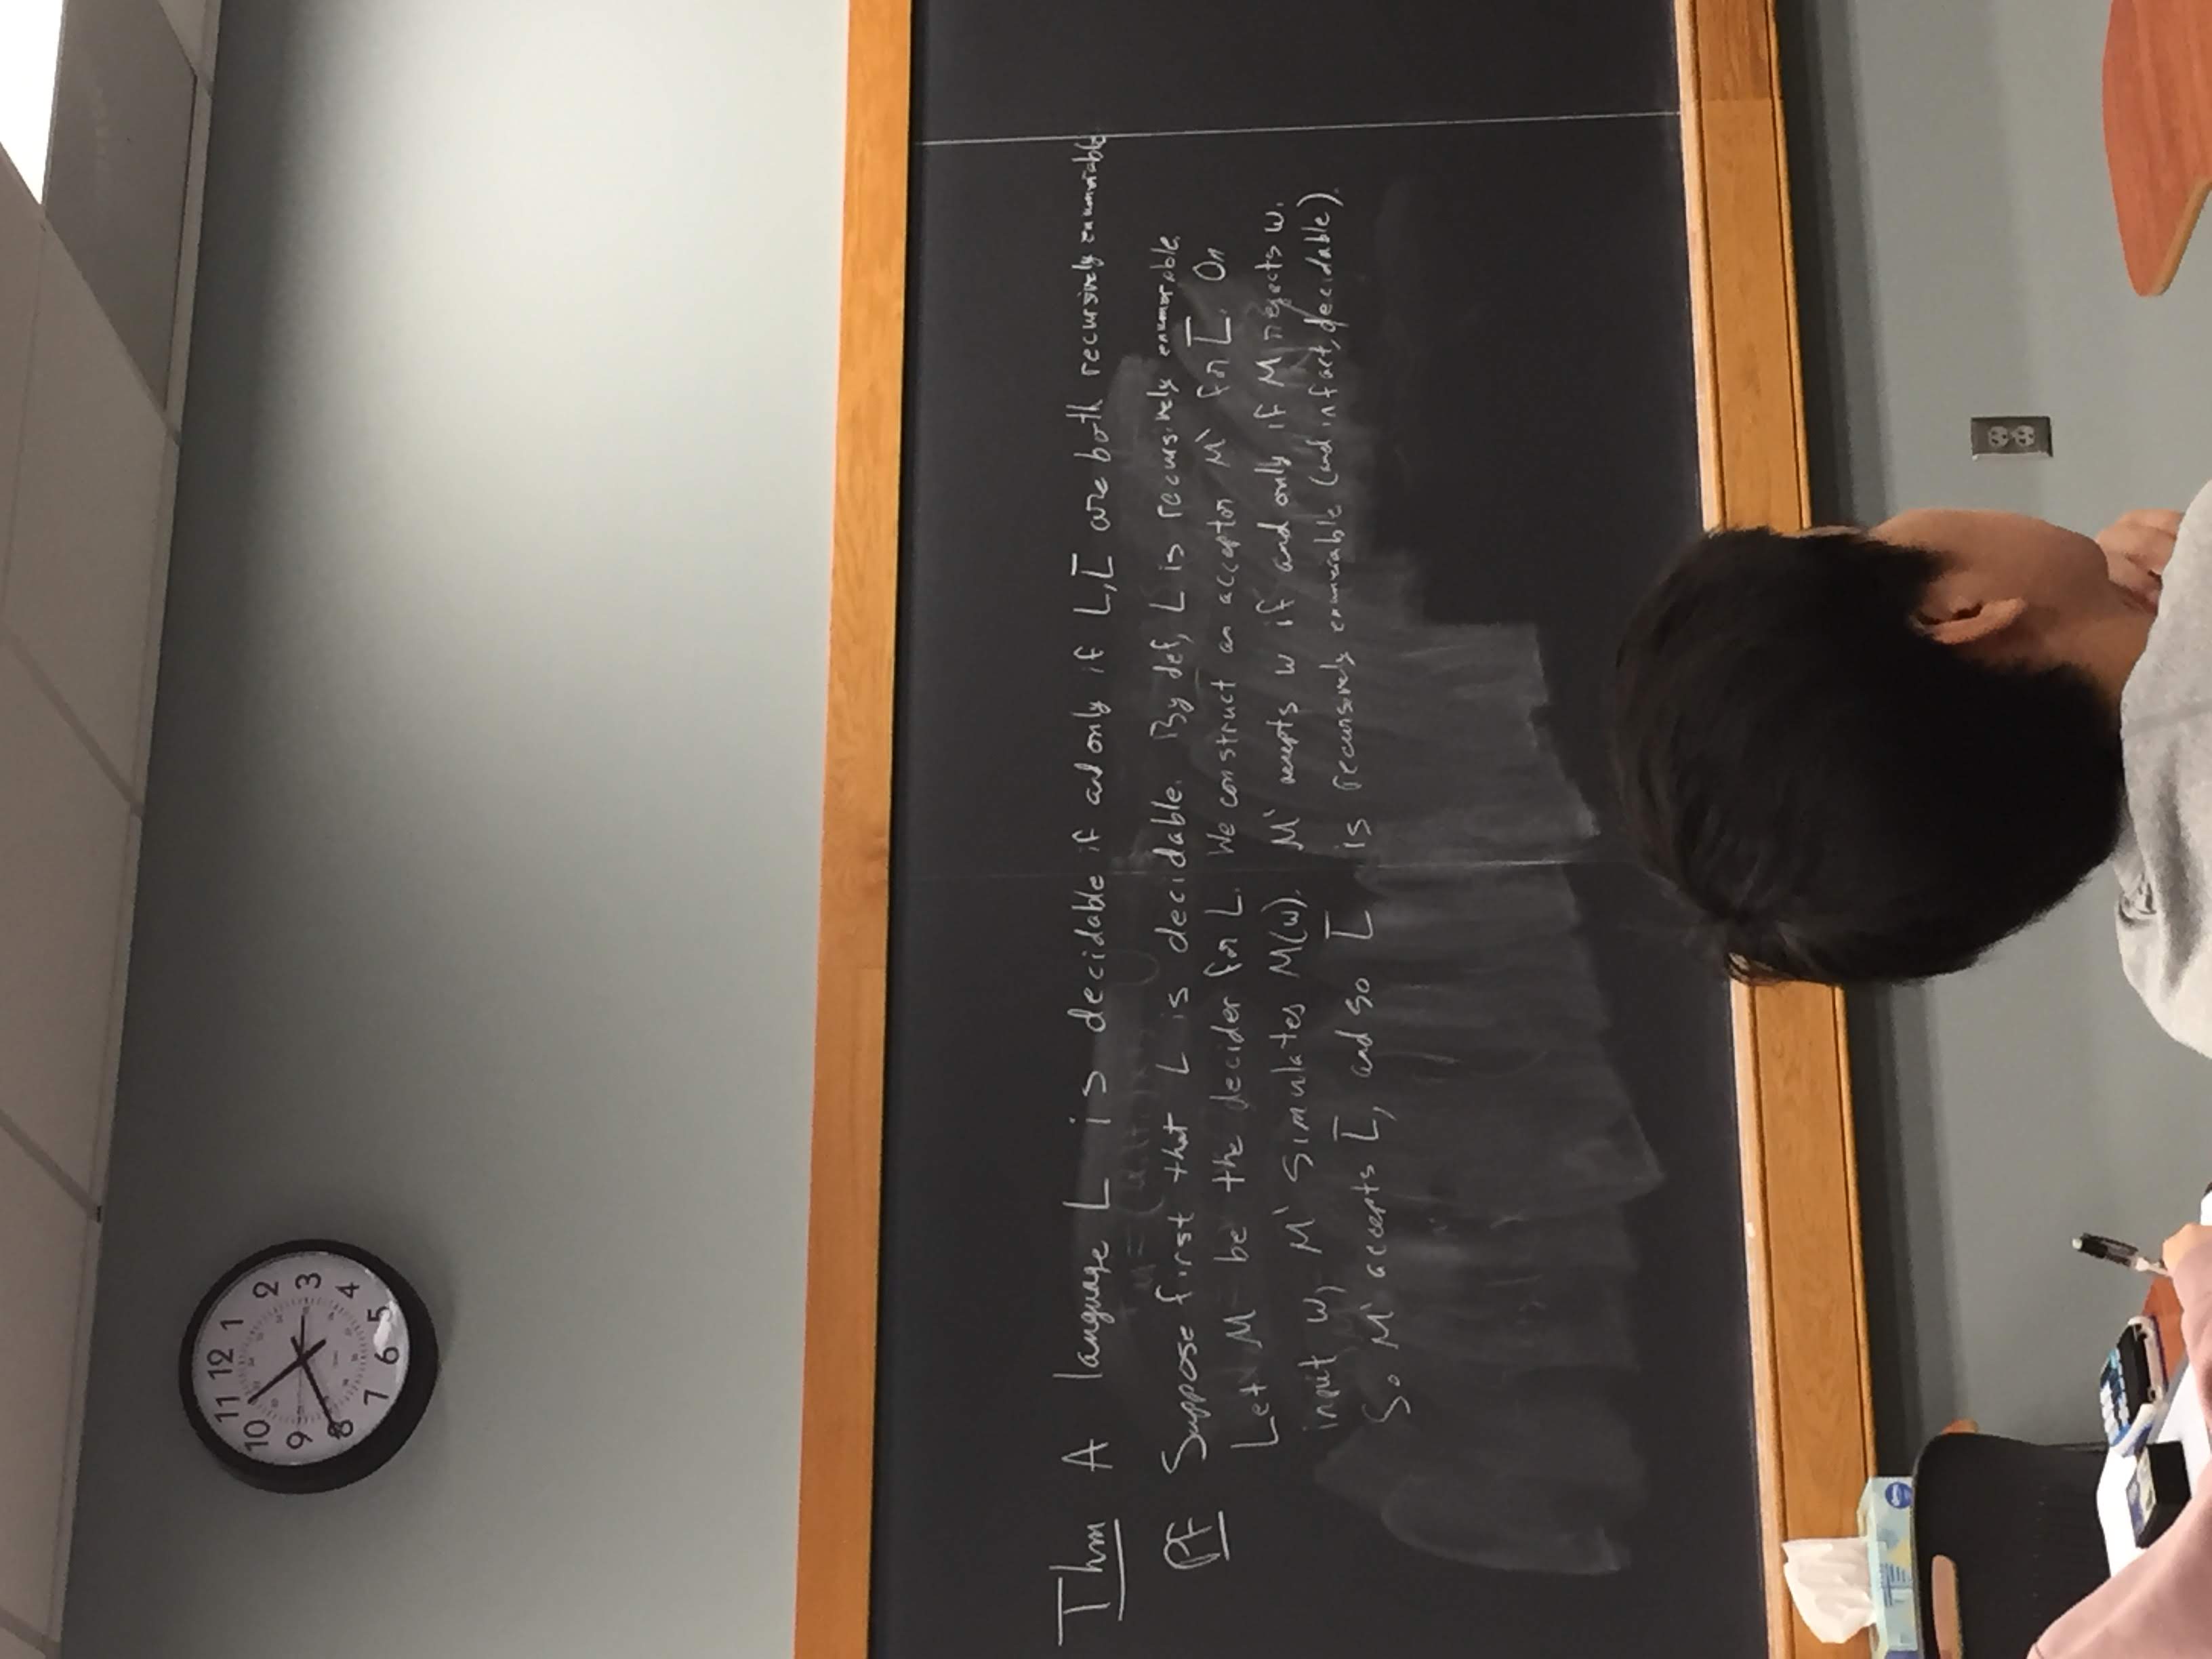 11 12 1
10 2
9 3
8 4
7 6 5
Thm A language L is decidable if and only if L, L̅ are both recursively enumerable
Pf Suppose first that L is decidable. By def, L is recursively enumerable.
Let M be the decider for L. We construct an acceptor M' for L̅. On
input w, M' simulates M(w). M' accepts w if and only if M rejects w.
So M' accepts L̅, and so L̅ is recursively enumerable (and in fact, decidable).
Kleenex